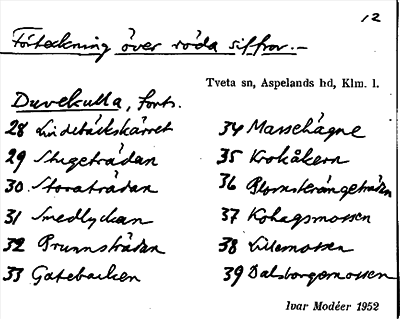 12
Förteckning över röda siffror.-
Tveta sn, Aspelands hd, Klm. l.
Duvekulla, forts.
28 Lindebäckskärret
29 Stugeträdan
30 Storaträdan
31 Smedlyckan
32 Brunnsträdan
33 Gatebacken
34 Massehagne
35 Krokåkern
36 Blomsterängeträdan
37 Kohagsmossen
38 Lillemossen
39 Dalsborgsmossen
Ivar Modéer 1952